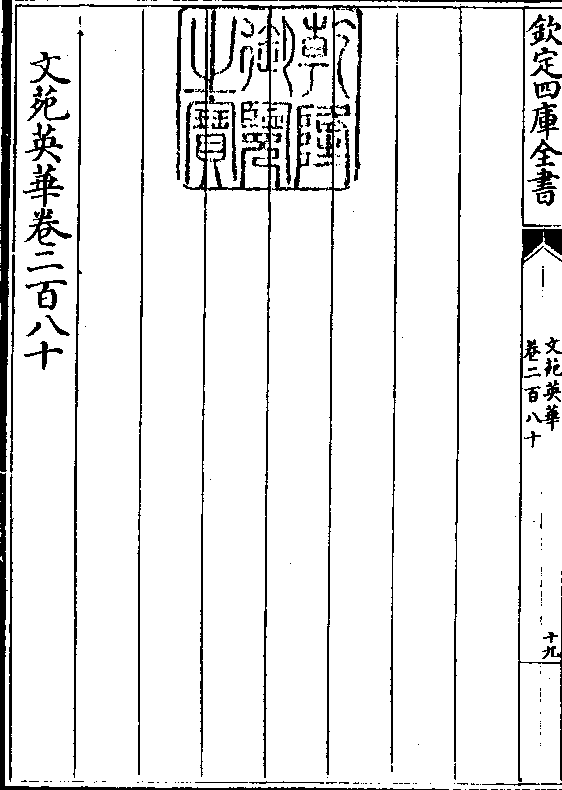 欽定四庫全書
文苑英華
卷二百八十
十九
乾隆
御覽
之寶
文苑英華卷二百八十